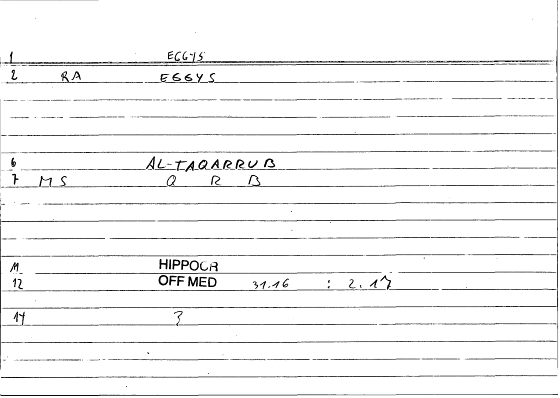 1 EGGYS
2 RA EGGYS
6 AL-TAQARRUB
7 MS Q R B
11 HIPPOCR
12 OFF MED 31.16 : 2.17
14 ?